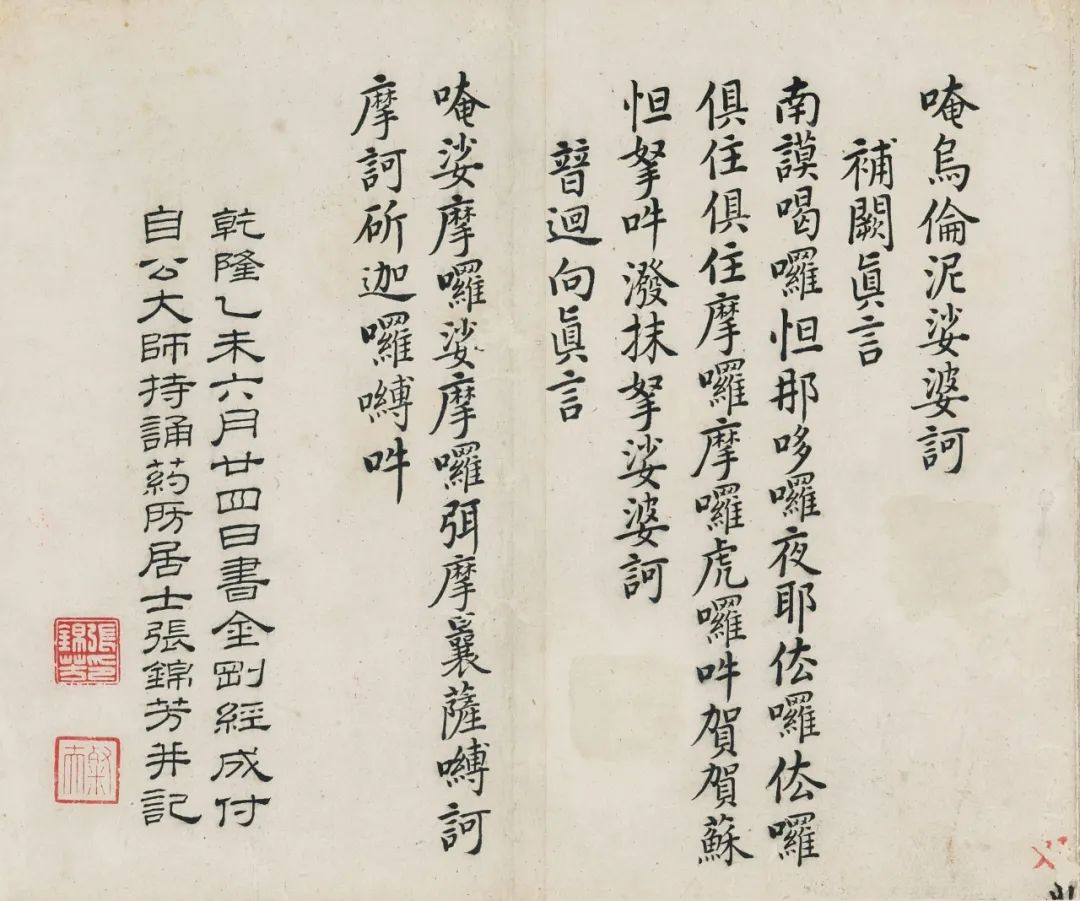 唵烏倫泥娑婆訶
補闕眞言
南謨喝囉怛那哆囉夜耶佉囉佉囉
俱住俱住摩囉摩囉虎囉吽賀賀蘇
怛拏吽潑抹拏娑婆訶
普迴向眞言
唵娑摩囉娑摩囉弭摩曩薩嚩訶
摩訶斫迦囉嚩吽
乾隆乙未六月廿四日書金剛經成付
自公大師持誦葯房居士張錦芳并記
張錦芳印